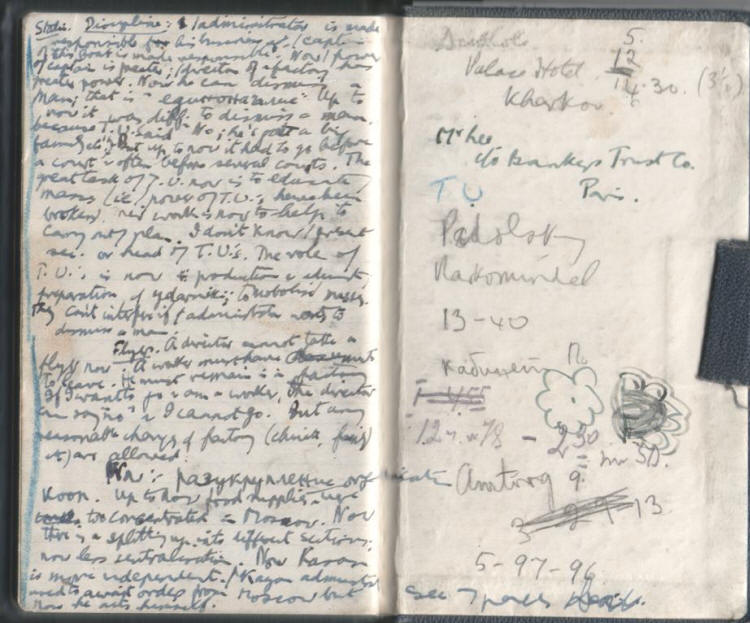 Discipline: administrator is made
responsible for his business
of the boat is made responsible. Now power
of captain is greater; director of factory has
greater power. Now he can dismiss a
man; that is "единоначалие". Up to
now it was diff. to dismiss a man.
because T.U. said "No; he's got a big
family etc". But up to now it had to go before
a court & often before several courts. The
great task of T.U. now is to educate
masses (i.e. power of T.U.'s has been
broken. new work is now to help to
carry out plan. I don't know present
sec. or head of T.U's. The role of
T.U.'s is now to production &
preparation of udarniki; to mobolise masses.
They can't interfere if administrator wants to
dismiss a man.
A director cannot take a
now. A worker must have
to leave. He must remain in factory
If I want to go & am a worker, the director
can say "no" & I cannot go. But any
reasonable change of factory (climate, family
etc) are allowed.
Now: разукрупление
Кооп. Up to now food supplies were
too concentrated in Moscow. Now
there is a splitting up into different sections;
now less centralisation. Now Kazan
is more independent. Kazan administrator
used to await orders from Moscow but
now he acts himself.
5.
Palace Hotel 12
Kharkov 14.30. (3½)
Mr Lee
c/o Bankers Trust Co.
T.U Paris.
13-40
кабинет
12 ч. - 230
9.
13
5-97-96
See 7 pages back.